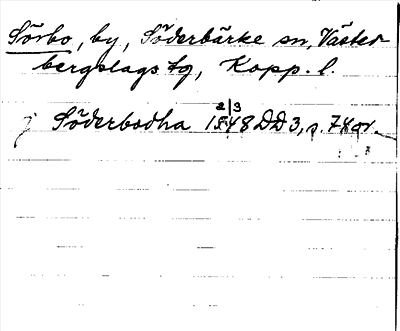 Sörbo, by, Söderbärke sn, Väster-
bergslags tg, Kopp. l.
Söderbodha 1548 2/3 DD 3, s. 74 or.